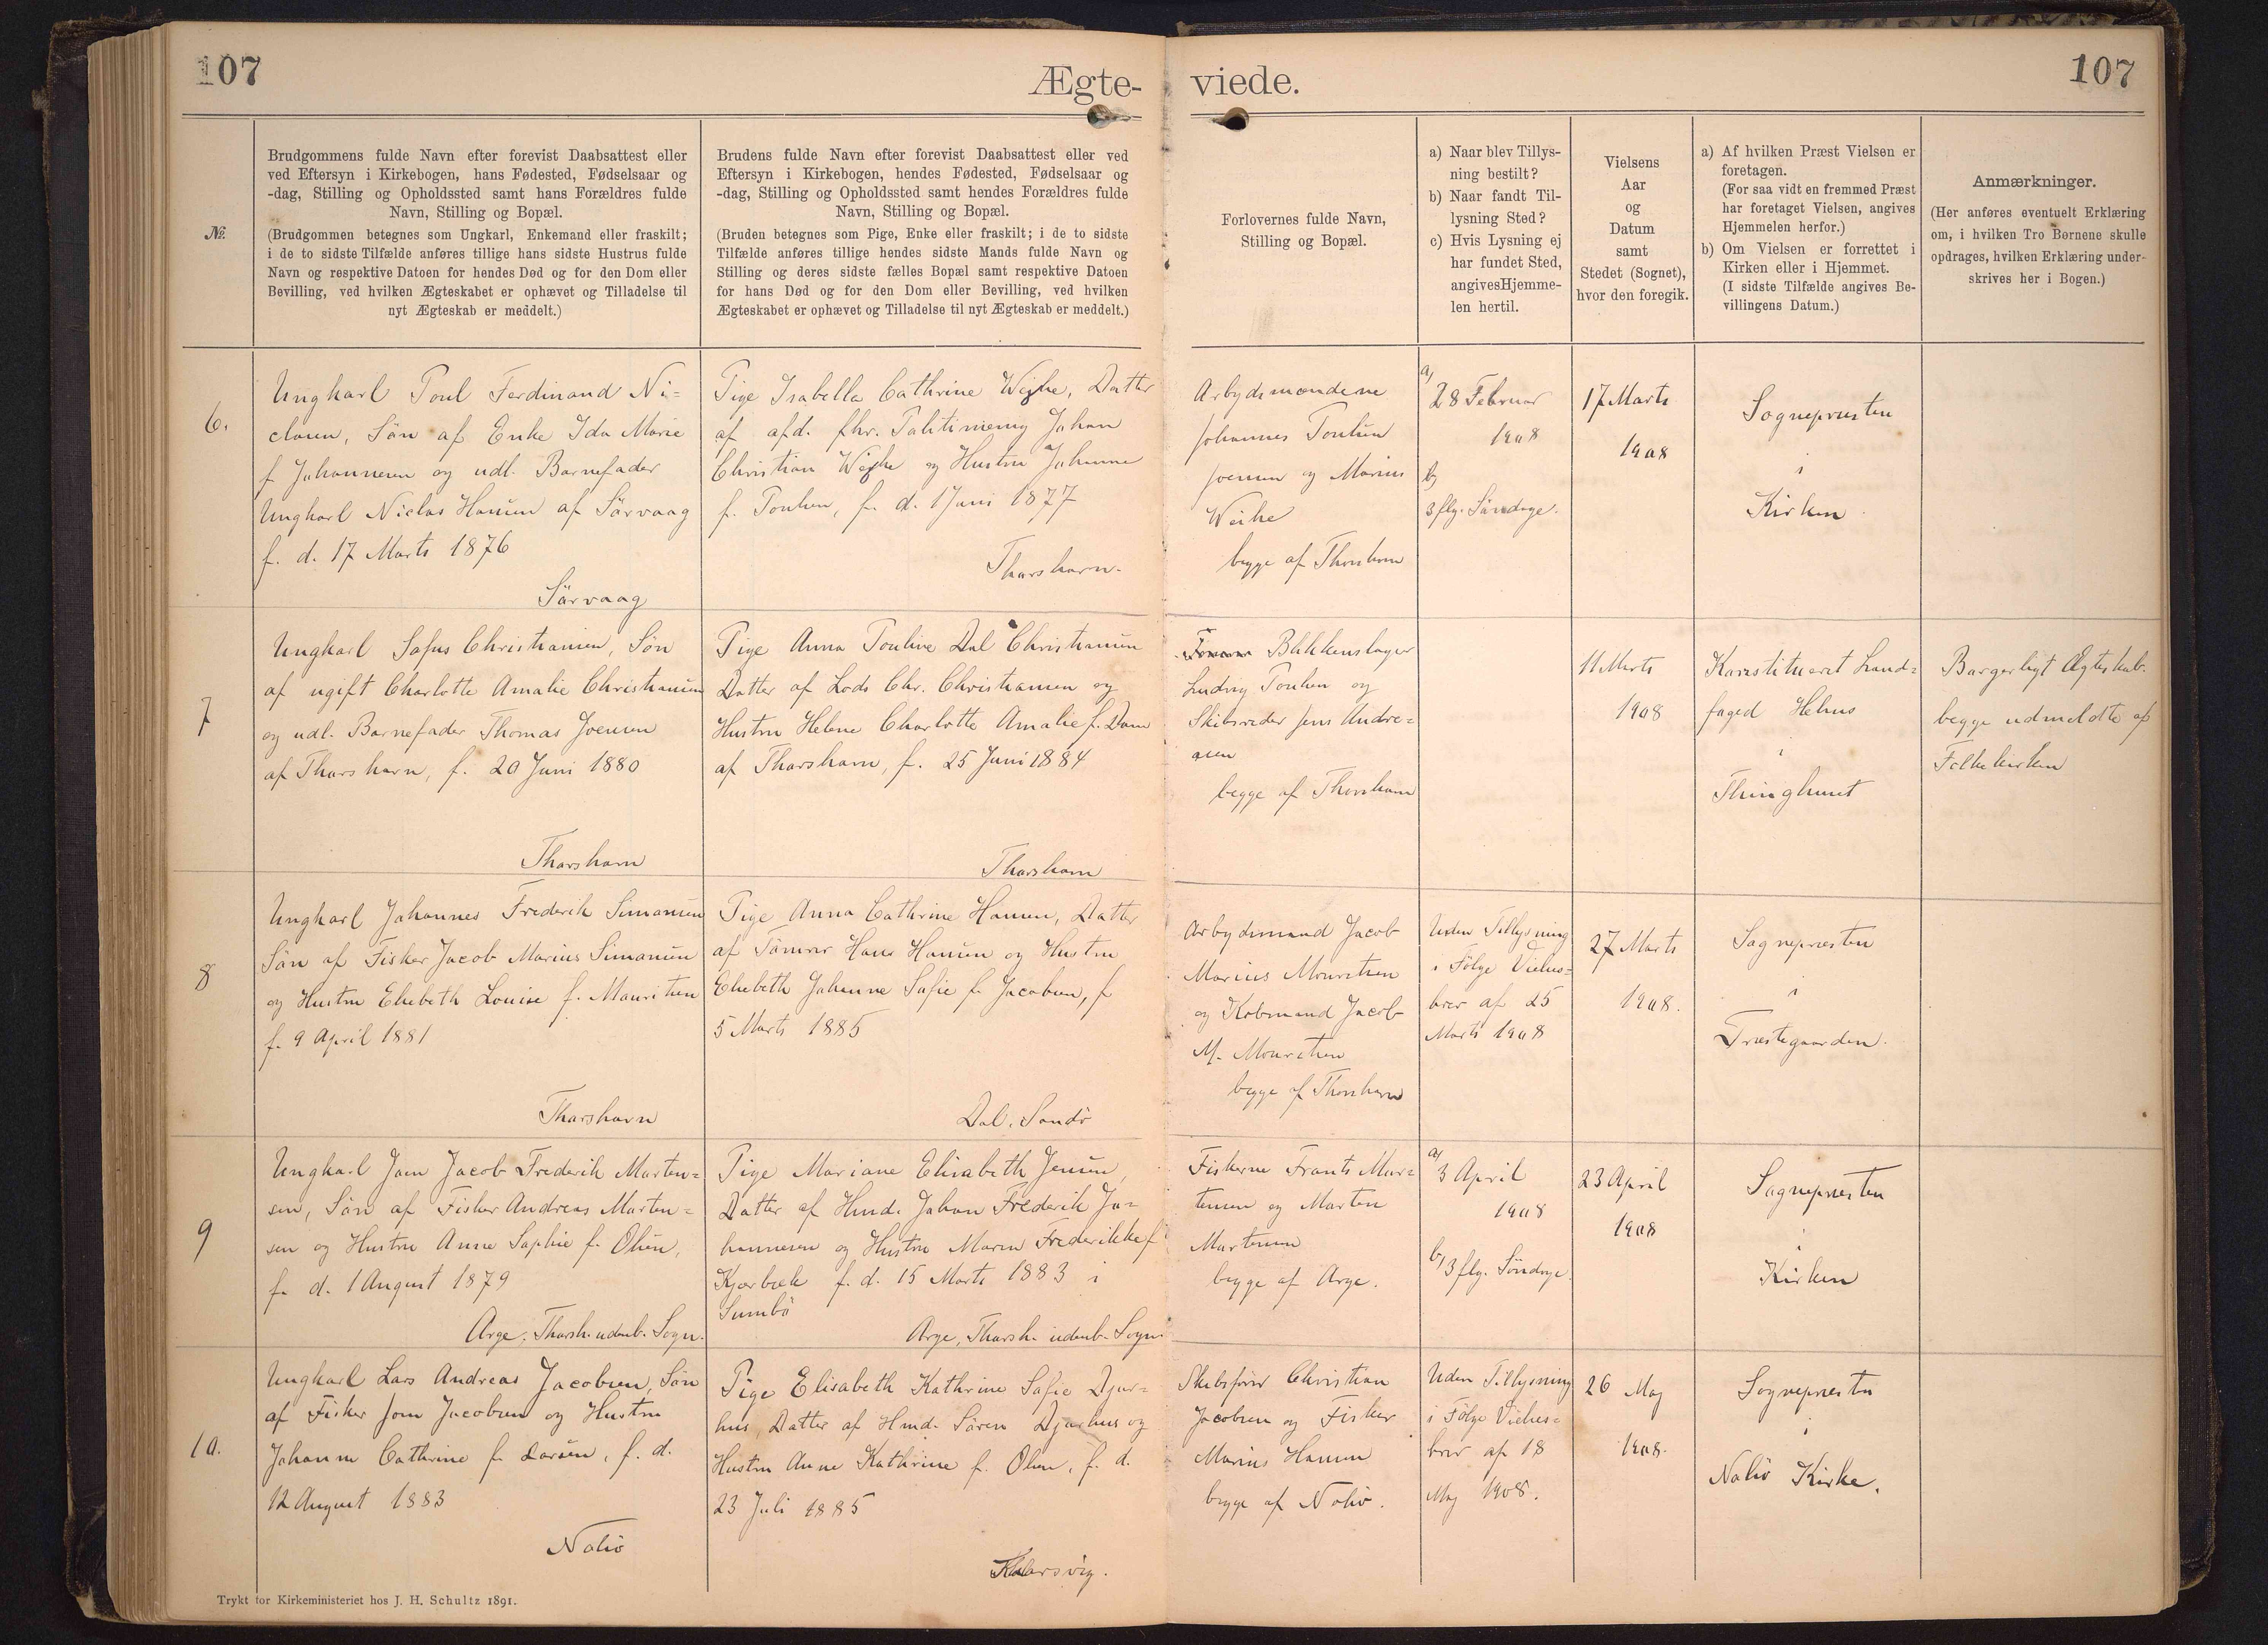 107
Ægte-
viede.
107
№.
Brudgommens fulde Navn efter forevist Daabsattest eller
ved Eftersyn i Kirkebogen, hans Fødested, Fødselsaar og
-dag, Stilling og Opholdssted samt hans Forældres fulde
Navn, Stilling og Bopæl.
(Brudgommen betegnes som Ungkarl, Enkemand eller fraskilt;
i de to sidste Tilfælde anføres tillige hans sidste Hustrus fulde
Navn og respektive Datoen for hendes Død og for den Dom eller
Bevilling, ved hvilken Ægteskabet er ophævet og Tilladelse til
nyt Ægteskab er meddelt.)
Brudens fulde Navn efter forevist Daabsattest eller ved
Eftersyn i Kirkebogen, hendes Fødested, Fødselsaar og
-dag, Stilling og Opholdssted samt hendes Forældres fulde
Navn, Stilling og Bopæl.
(Bruden betegnes som Pige, Enke eller fraskilt; i de to sidste
Tilfælde anføres tillige hendes sidste Mands fulde Navn og
Stilling og deres sidste fælles Bopæl samt respektive Datoen
for hans Død og for den Dom eller Bevilling, ved hvilken
Ægteskabet er ophævet og Tilladelse til nyt Ægteskab er meddelt.)
Forlovernes fulde Navn,
Stilling og Bopæl.
a) Naar blev Tillys-
ning bestilt?
b) Naar fandt Til-
lysning Sted?
c) Hvis Lysning ej
har fundet Sted,
angives Hjemme-
len hertil.
Vielsens
Aar
og
Datum
samt
Stedet (Sognet),
hvor den foregik.
a) Af hvilken Præst Vielsen er
foretagen.
(For saa vidt en fremmed Præst
har foretaget Vielsen, angives
Hjemmelen herfor.)
b) Om Vielsen er forrettet i
Kirken eller i Hjemmet.
(I sidste Tilfælde angives Be-
villingens Datum.)
Anmærkninger.
(Her anføres eventuelt Erklæring
om, i hvilken Tro Børnene skulle
opdrages, hvilken Erklæring under-
skrives her i Bogen.)
6.
Ungkarl Poul Ferdinand Ni=
clasen, Søn af Enke Ida Marie
f. Johannesen og udl. Barnefader
Ungkarl Niclas Hansen af Sörvaag
f. d. 17 Marts 1876
Sörvaag
Pige Isabella Cathrine Weihe, Datter
af afd. fhv. Johan
Christian Weihe og Hustru Johanne
f. Poulsen, f. d. 1 Juni 1877
Thorshavn.
Arbejdsmændene
Johannes Poulsen
Joensen og Marius
Weihe
begge af Thorshavn
a)
28 Februar
1908
b)
3 flg. Søndage.
17 Marts
1908
Sognepræsten
i
Kirken
7
Ungkarl Sofus Christiansen, Søn
af ugift Charlotte Amalie Christiansen
og udl. Barnefader Thomas Joensen
af Thorshavn, f. 20 Juni 1880
Thorshavn
Pige Anna Pouline Dal Christiansen
Datter af Lods Chr. Christiansen og
Hustru Helene Charlotte Amalie f. Dam
af Thorshavn, f. 25 Juni 1884
Thorshavn
Blikkenslager
Ludvig Poulsen og
Skibsreder Jens Andre=
asen
begge af Thorshavn
11 Marts
1908
Konstitueret Land=
foged Hehus
i
Thinghuset
Borgerligt Ægteskab.
begge udmeldte af
Folkekirken
8
Ungkarl Johannes Frederik Simonsen
Søn af Fisker Jacob Marius Simonsen
og Hustru Elsebeth Louise f. Mouritsen
f. 9 April 1881
Thorshavn
Pige Anna Cathrine Hansen, Datter
af Tömrer Hans Hansen og Hustru
Elsebeth Johanne Sofie f. Jacobsen, f.
5 Marts 1885
Dal, Sandö
Arbejdsmand Jacob
Marius Mouritsen
og Købmand Jacob
M. Mouritsen
begge af Thorshavn
Uden Tillysning
i Følge Vielses=
brev af 25
Marts 1908
27 Marts
1908.
Sognepræsten
i
Præstegaarden.
9
Ungkarl Joen Jacob Frederik Marten=
sen, Søn af Fisker Andreas Marten=
sen og Hustru Anne Sophie f. Olsen,
f. d. 1 August 1879
Arge, Thorsh. udenb. Sogn.
Pige Mariane Elisabeth Jensen,
Datter af Hmd. Johan Frederik Jo=
hannesen og Hustru Maren Frederikke f.
Kjærbæk f. d. 15 Marts 1883 i
Sumbö
Arge, Thorsh. udenb. Sogn
Fiskerne Frants Mar=
tensen og Morten
Martensen
begge af Arge.
a)
3 April
1908
b) 3 flg. Søndage.
23 April
1908
Sognepræsten
i
Kirken
10.
Ungkarl Lars Andreas Jacobsen, Søn
af Fisker Joen Jacobsen og Hustru
Johanne Cathrine f. Larsen, f. d.
12 August 1883
Nolsö
Pige Elisabeth Kathrine Sofie Djur=
hus, Datter af Hmd. Sören Djurhus og
Hustru Anne Kathrine f. Olsen, f. d.
23 Juli 1885
Skibsfører Christian
Jacobsen og Fisker
Marius Hansen
begge af Nolsö.
Uden Tillysning
i Følge Vielses=
brev af 18
Maj 1908.
26 Maj
1908.
Sognepræsten
i
Nolsö Kirke.
Trykt for Kirkeministeriet hos J. H. Schultz 1891.